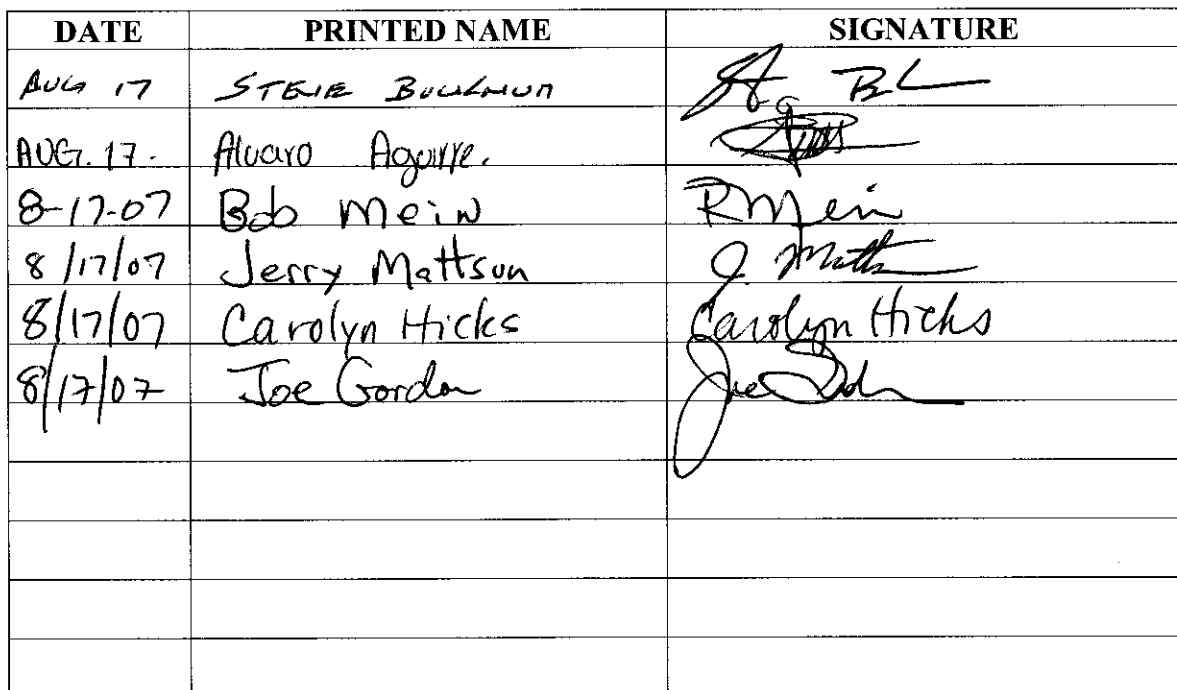 DATE PRINTED NAME SIGNATURE
AUG 17 STEVE
AUG. 17. Alvaro Aguirre.
8-17-07 Bob Mein R Mein
8/17/07 Jerry Mattson J. Matt
8/17/07 Carolyn Hicks Carolyn Hicks
8/17/07 Joe Gordon Joe